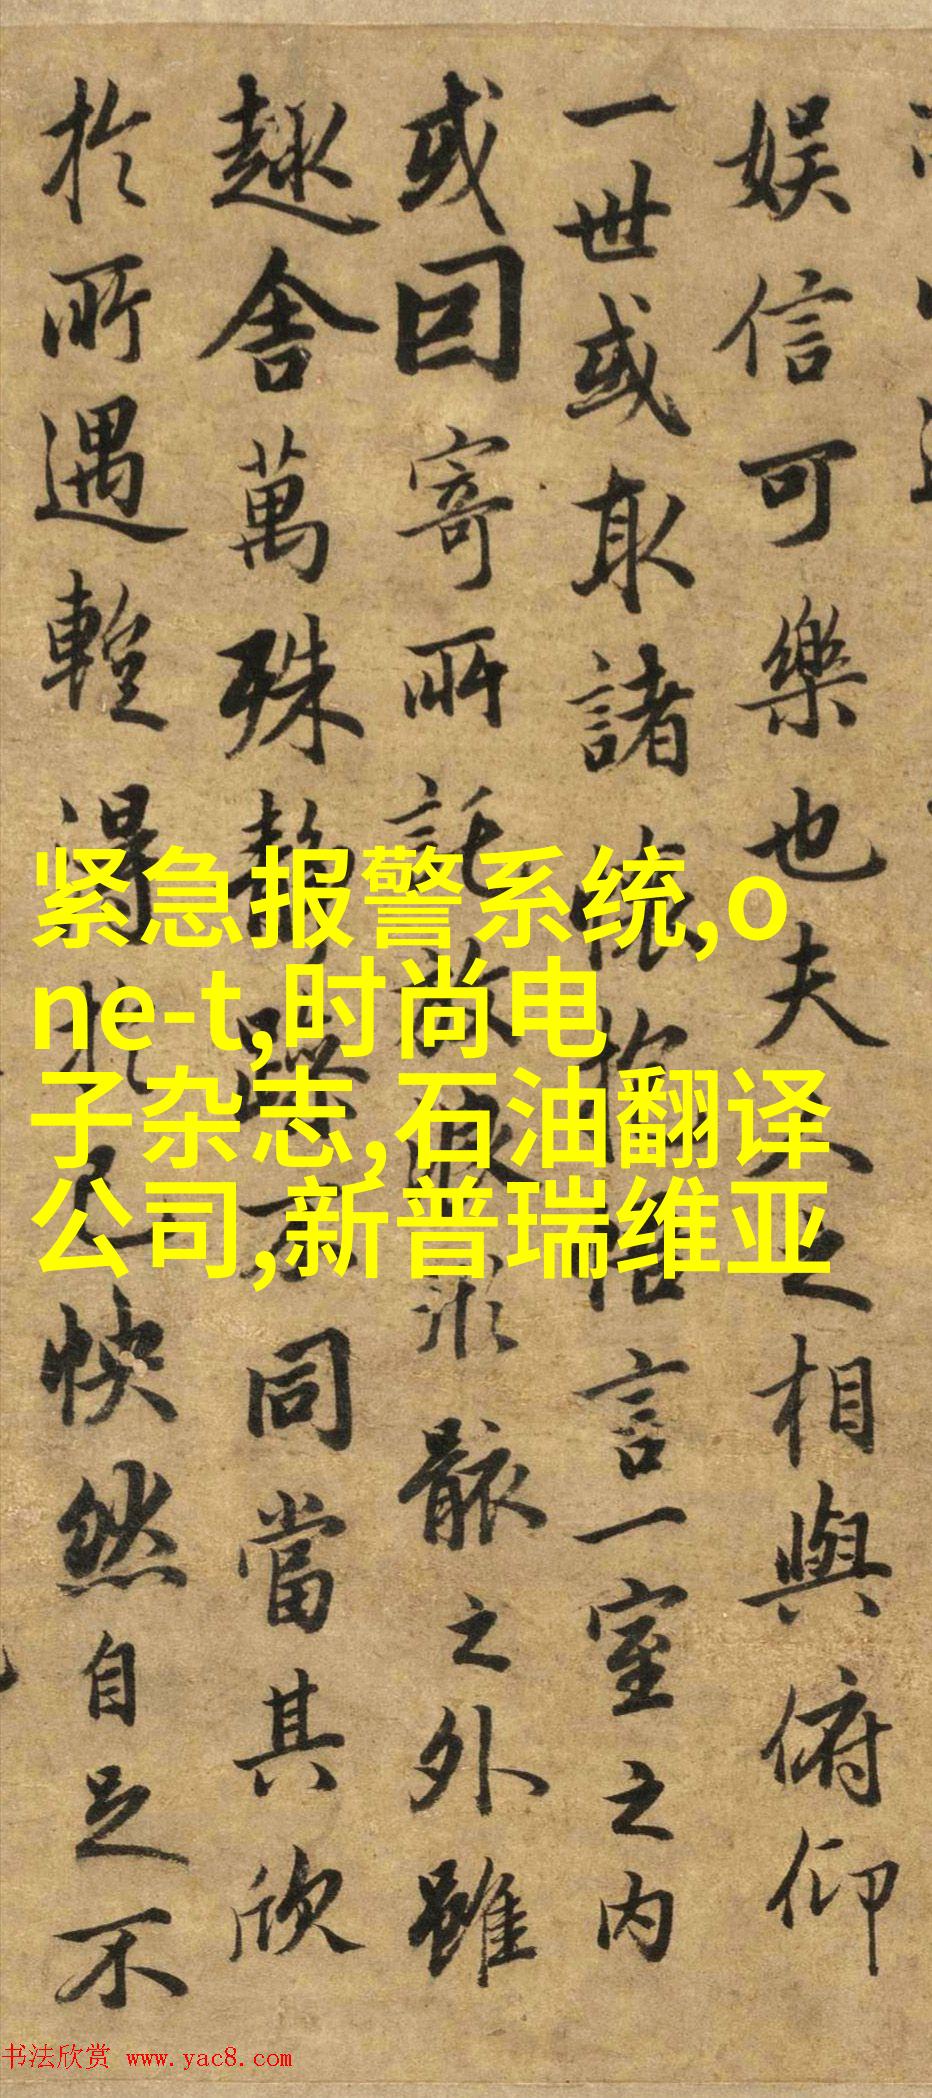 娱信可樂也夫人之相與俯仰
一世或取諸懷抱悟言一室之内
或因寄所託放浪形骸之外雖
趣舍萬殊静躁不同當其欣
於所遇輙得於己快然自足不
紧急报警系统,o
ne-t,时尚电
子杂志,石油翻译
公司,新普瑞维亚
书法欣赏 www.yac8.com